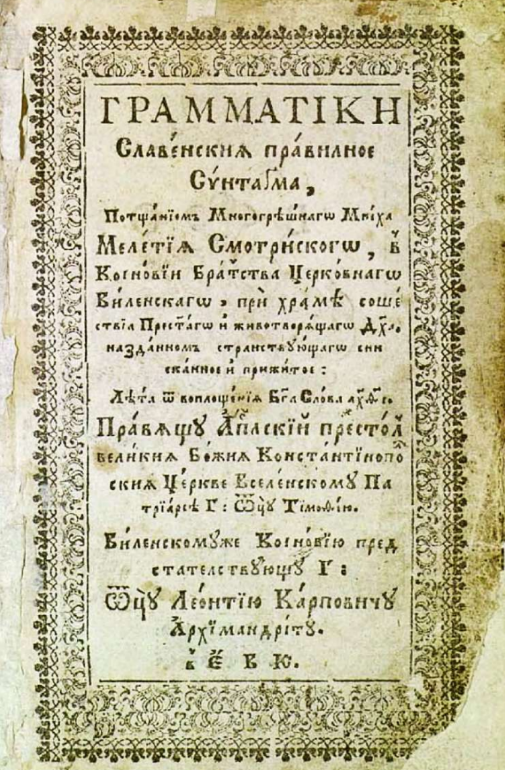 ГРАММАТІКИ
Славе́нскиѧ пра́вилное
Сѵ́нтаґма,
Потщанїемъ Многогрѣ́шнагѡ Мни́ха
Меле́тїѧ Смотри́скогѡ, в̾
Коїно́вїи Бра́тства Церко́внагѡ
Виленскагѡ, прѝ храмѣ соше́
ствїѧ Прест҃агѡ и животворѧ́щагѡ Дх҃а,
наз̾да́нномъ странствꙋ́ющагѡ
сканное и прижи́тое:
Лѣ́та ѿ воплоще́нїѧ Бг҃а Сло́ва
Пра́вѧщꙋ Ап҃лскїй престо́л
вели́киѧ Бо́жїѧ Константїнопо
скиѧ Це́ркве Вселенскомꙋ Па
трїа́рсѣ Г: Ѿцꙋ̀ Тїмоѳе́ю.
Виленскомꙋже Коїно́вїю пред
ста́телствꙋющꙋ Г:
Ѿцꙋ̀ Лео́нтїю Ка́рповичꙋ
Архїманд́ритꙋ.
в̾ Е́ В Ю.